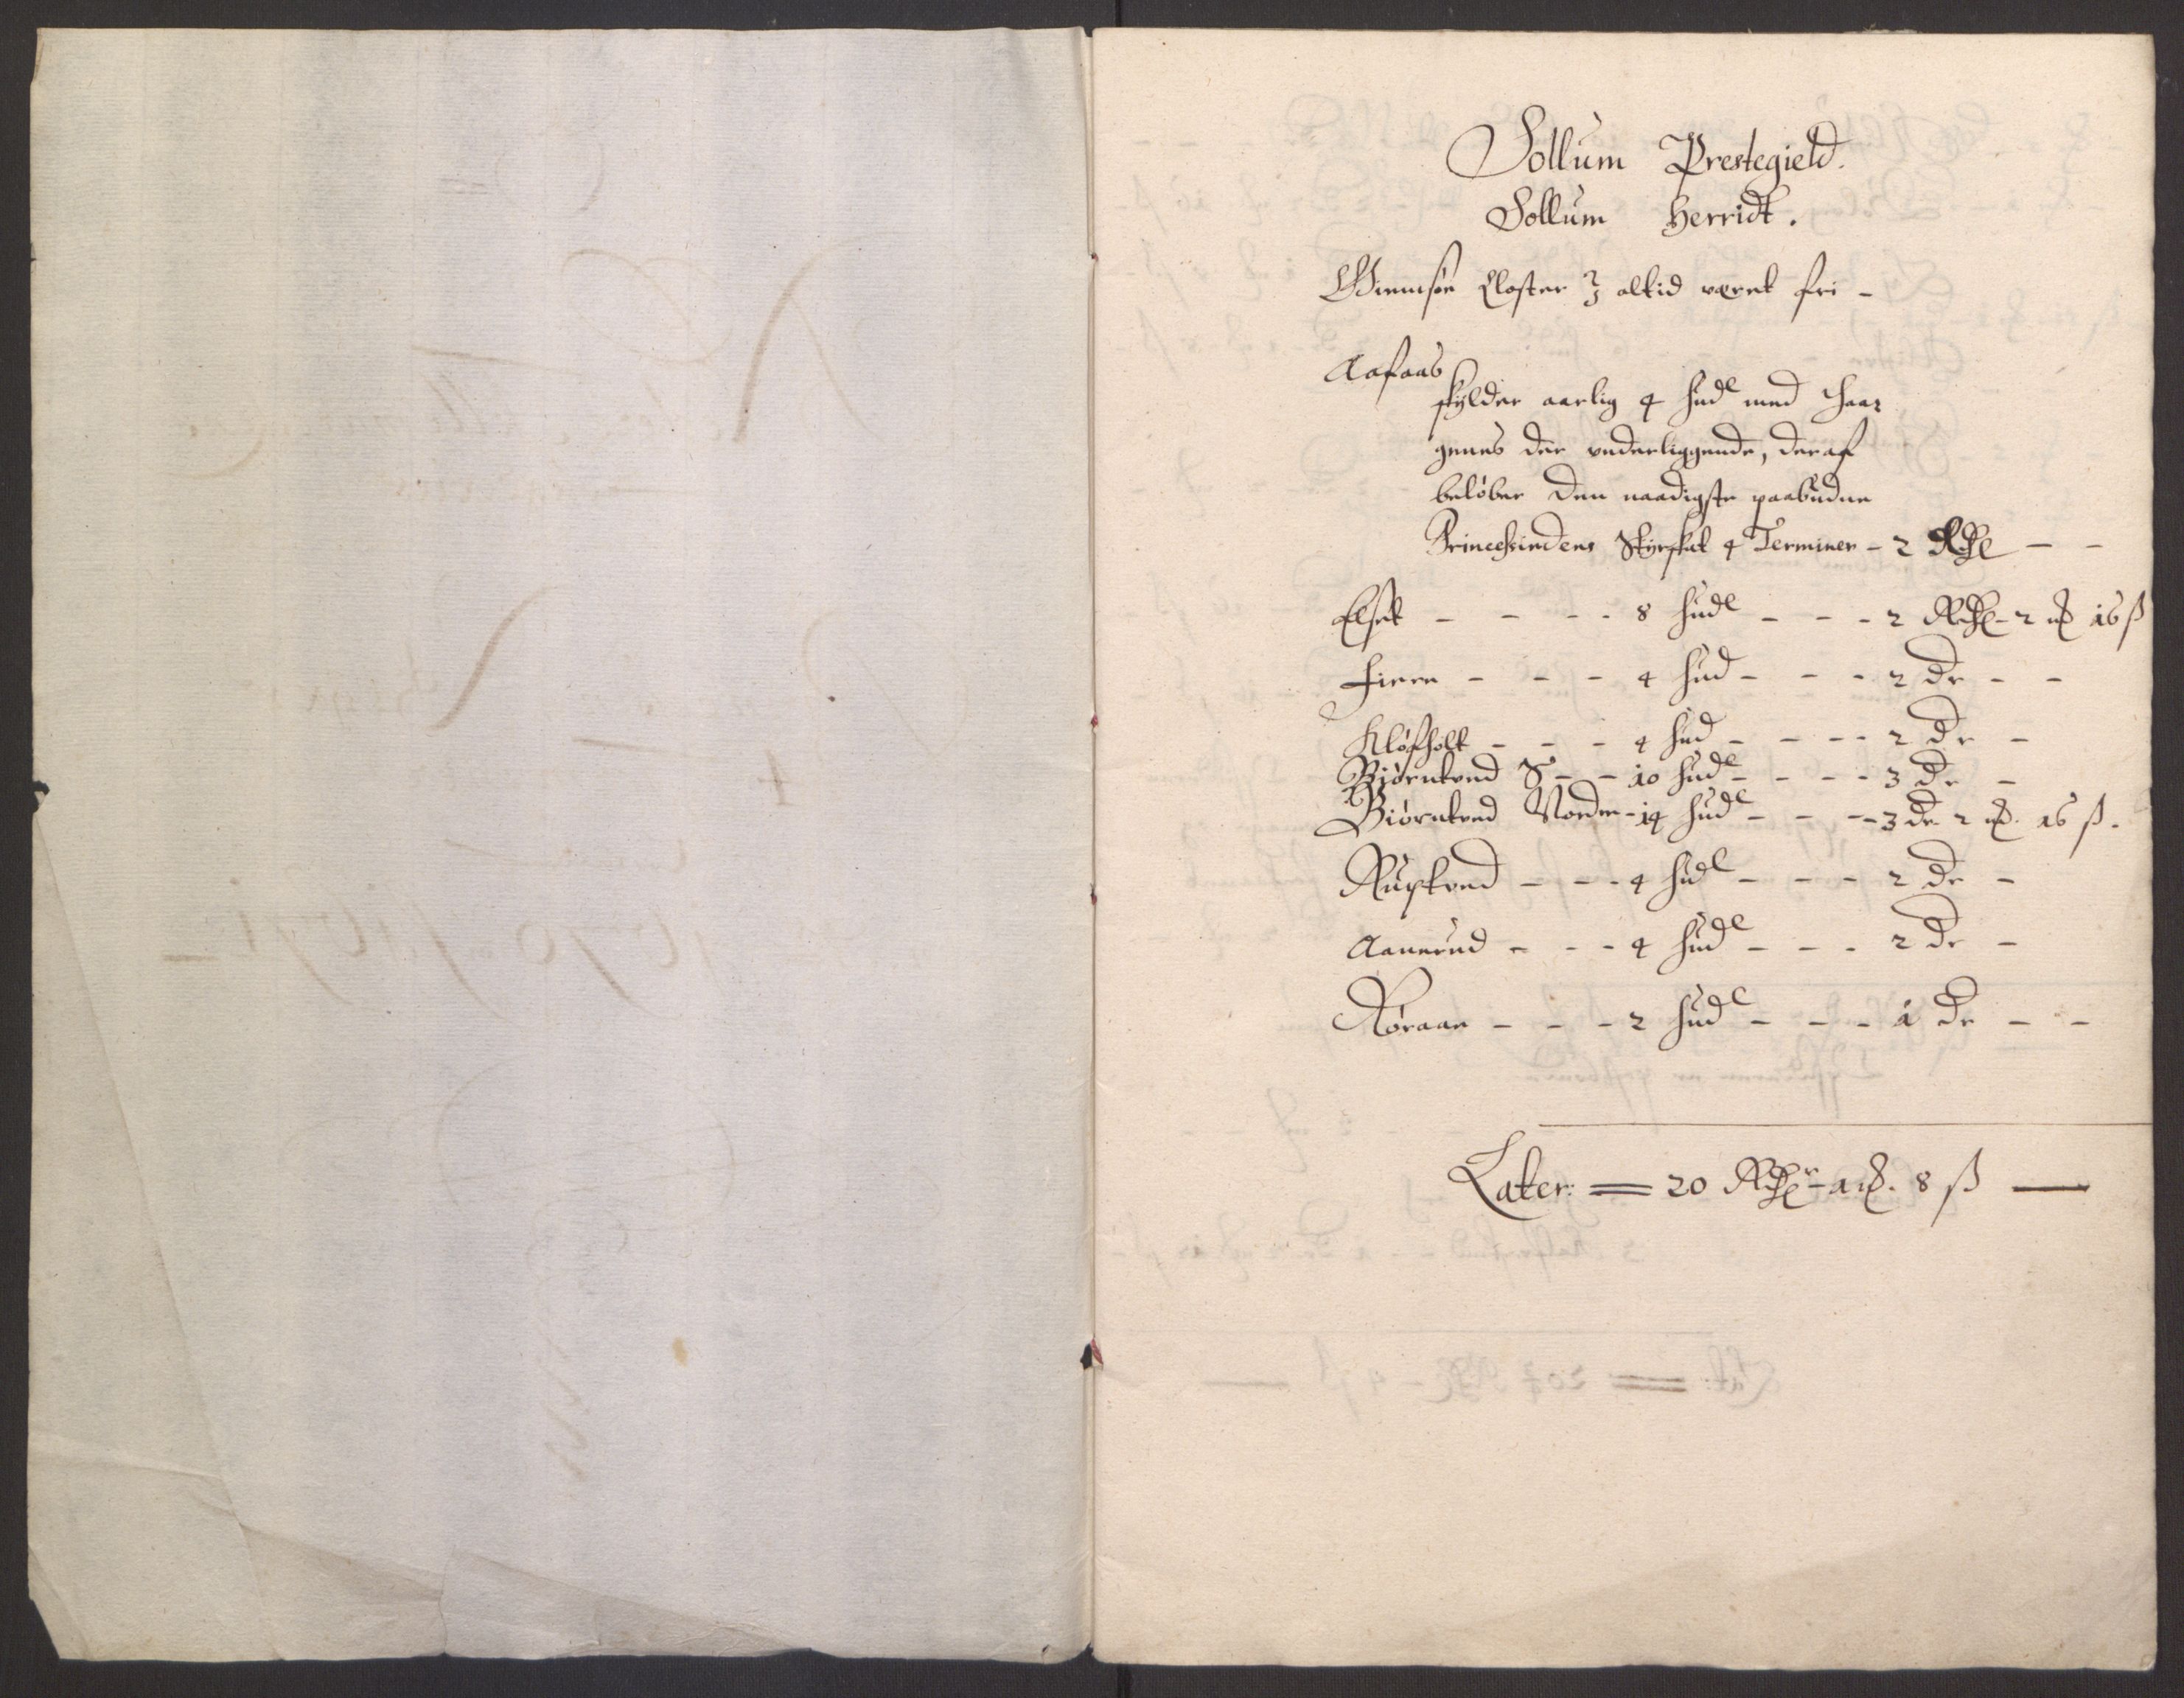 Sollum Prestegield.
Sollum Herridt.
Giemsøe Closter altid veret fri -
Aafaas
skylder aarlig 4 hudr med Haar
der underliggende, deraf
beløber den naadigste paabudne
Princessindens Styrskat 4 Terminer - 2 Rdr - -
Elset - - - - 8 hudr - - - 2 Rdr - 2 mk 16 ß
Fieren - - - 4 hud - - - 2 dr - -
Kløfholt - - - 4 hud - - - - 2 dr -
Biørntved S - - 10 hudr - - - - 3 dr -
Biørntved Norden - 14 hudr - - - 3 dr 2 mk. 16 ß.
Rugtved - - - 4 hudr - - - 2 dr -
Aanerud - - - 4 hudr - - - 2 dr -
Røraae - - - 2 hudr - - - 1 dr - -
Later: = 20 Rdr - 1 mk. 8 ß —